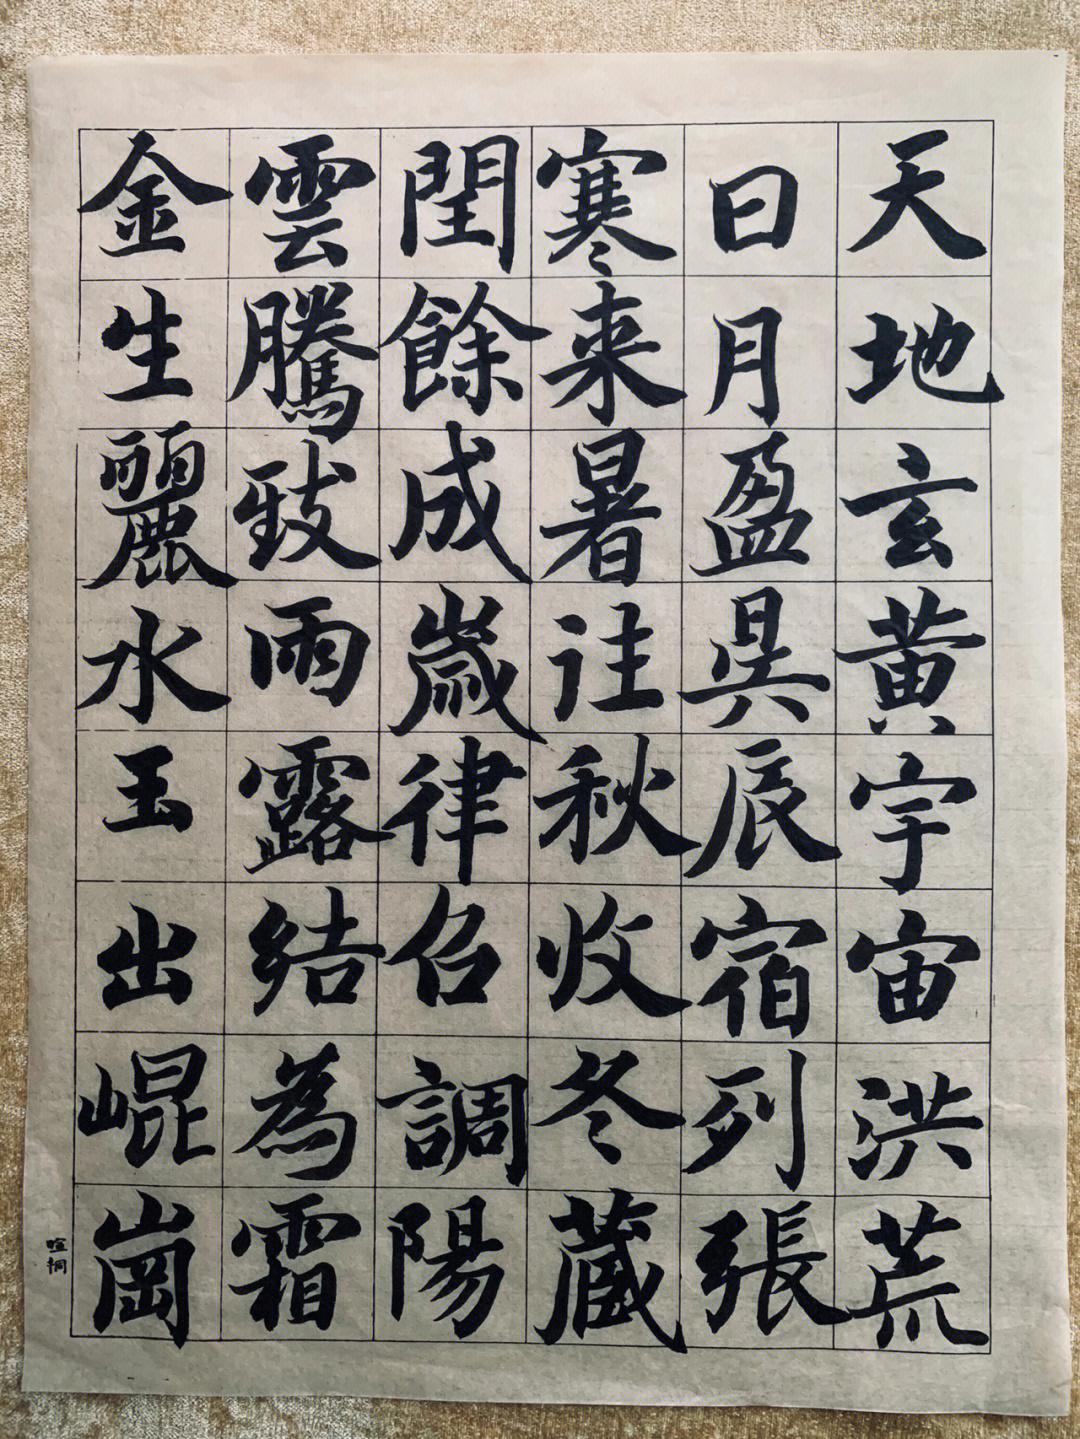 天地玄黃宇宙洪荒
日月盈昃辰宿列張
寒来暑往秋收冬蔵
閏餘成歲律召調陽
雲騰致雨露結為霜
金生麗水玉出崐崗
暄桐